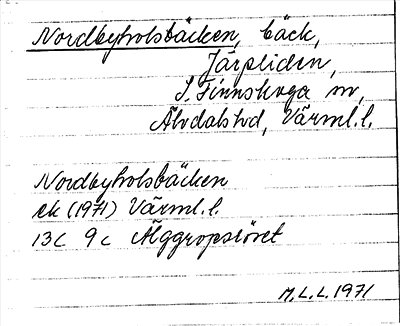 Nordbyholsbäcken, bäck,
Järpliden,
S. Finnskoga sn,
Älvdals hd, Värml. l.
Nordbyholsbäcken
ek (1971) Värml. l.
13C 9c Älggropsröret
M.L.L. 1971